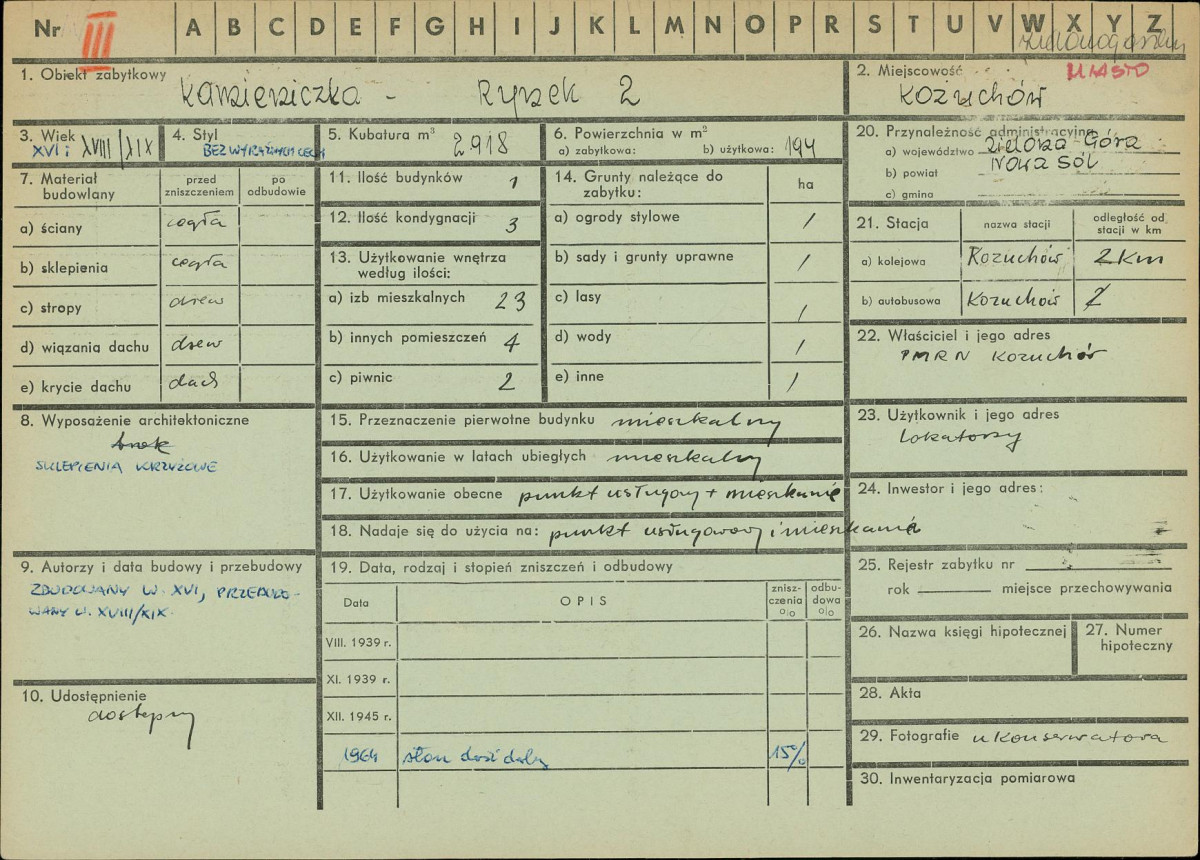 Nr III A B C D E F G H I J K L M N O P R S T U V W X Y Z
MIASTO
1. Obiekt zabytkowy
Kamieniczka - Rynek 2
2. Miejscowość
Kożuchów
3. Wiek
XVI i XVIII/XIX
4. Styl
BEZ WYRAŹNYCH CECH
5. Kubatura m³
2918
6. Powierzchnia w m²
a) zabytkowa: b) użytkowa: 194
20. Przynależność administracyjna
a) województwo Zielona Góra
b) powiat Nowa Sól
c) gmina
7. Materiał budowlany
przed zniszczeniem
po odbudowie
a) ściany cegła
b) sklepienia cegła
c) stropy drew
d) wiązania dachu drew
e) krycie dachu dach
11. Ilość budynków 1
12. Ilość kondygnacji 3
13. Użytkowanie wnętrza
według ilości:
a) izb mieszkalnych 23
b) innych pomieszczeń 4
c) piwnic 2
14. Grunty należące do
zabytku:
ha
a) ogrody stylowe /
b) sady i grunty uprawne /
c) lasy /
d) wody /
e) inne /
21. Stacja
nazwa stacji
odległość od
stacji w km
a) kolejowa Kożuchów 2 km
b) autobusowa Kożuchów 2
22. Właściciel i jego adres
PMRN Kożuchów
8. Wyposażenie architektoniczne
brak
SKLEPIENIA KRZYŻOWE
15. Przeznaczenie pierwotne budynku mieszkalny
16. Użytkowanie w latach ubiegłych mieszkalny
17. Użytkowanie obecne punkt usługowy + mieszkanie
18. Nadaje się do użycia na: punkt usługowy i mieszkanie
23. Użytkownik i jego adres
Lokatorzy
24. Inwestor i jego adres:
9. Autorzy i data budowy i przebudowy
ZBUDOWANY W. XVI, PRZEBUDO-
WANY W. XVIII/XIX.
19. Data, rodzaj i stopień zniszczeń i odbudowy
Data
OPIS
znisz-
czenia
%
odbu-
dowa
%
VIII. 1939 r.
XI. 1939 r.
XII. 1945 r.
1964 stan dość dobry 15%
25. Rejestr zabytku nr
rok miejsce przechowywania
26. Nazwa księgi hipotecznej
27. Numer
hipoteczny
10. Udostępnienie
dostępny
28. Akta
29. Fotografie u Konserwatora
30. Inwentaryzacja pomiarowa